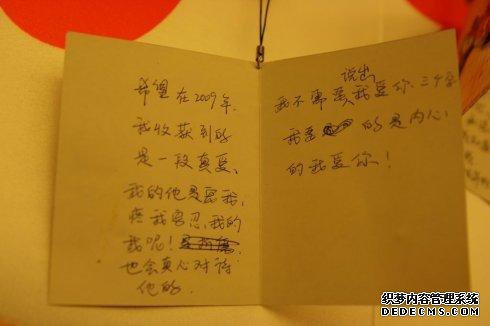 希望在2009年,
我收获到的
是一段真爱,
我的他是爱我,
疼我容忍我的
我呢!
也会真心对待
他的.
说出
我不需要我爱你三个字
我要的是内心
的我爱你!
织梦内容管理系统
DEDECMS.COM